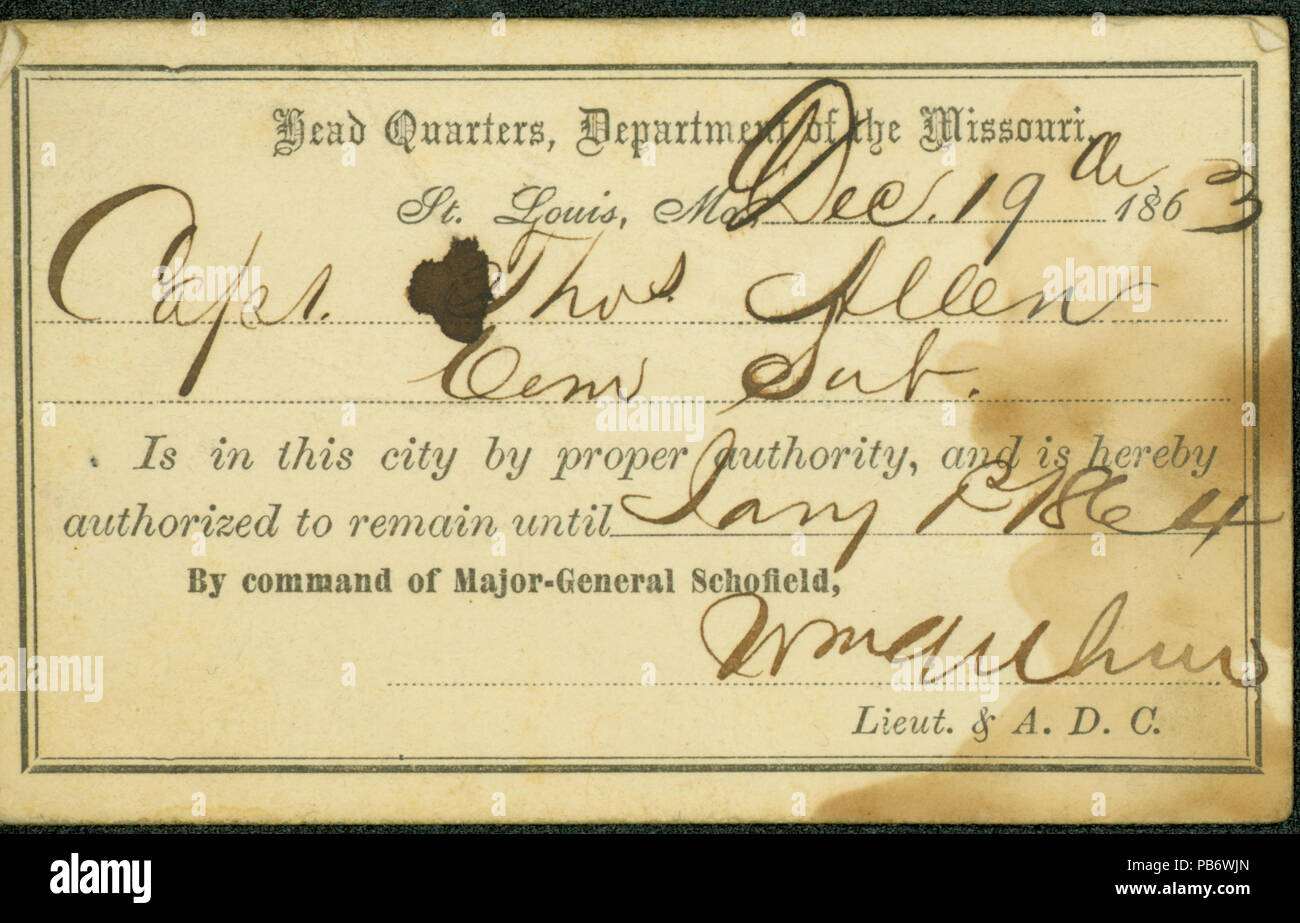 Head Quarters, Department of the Missouri,
St. Louis, Mo. Dec. 19th 1863
Capt. Thos. Allen
Com Sub.
Is in this city by proper authority, and is hereby
authorized to remain until Jany 1st 1864
By command of Major-General Schofield,
Wm
Lieut. & A. D. C.
alamy
alamy stock photo
PB6WJN
www.alamy.com